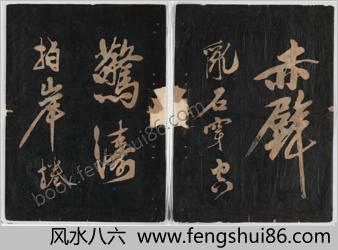 赤壁
亂石穿空
驚濤
拍岸捲
book.fengshui86.com
风水八六 www.fengshui86.com